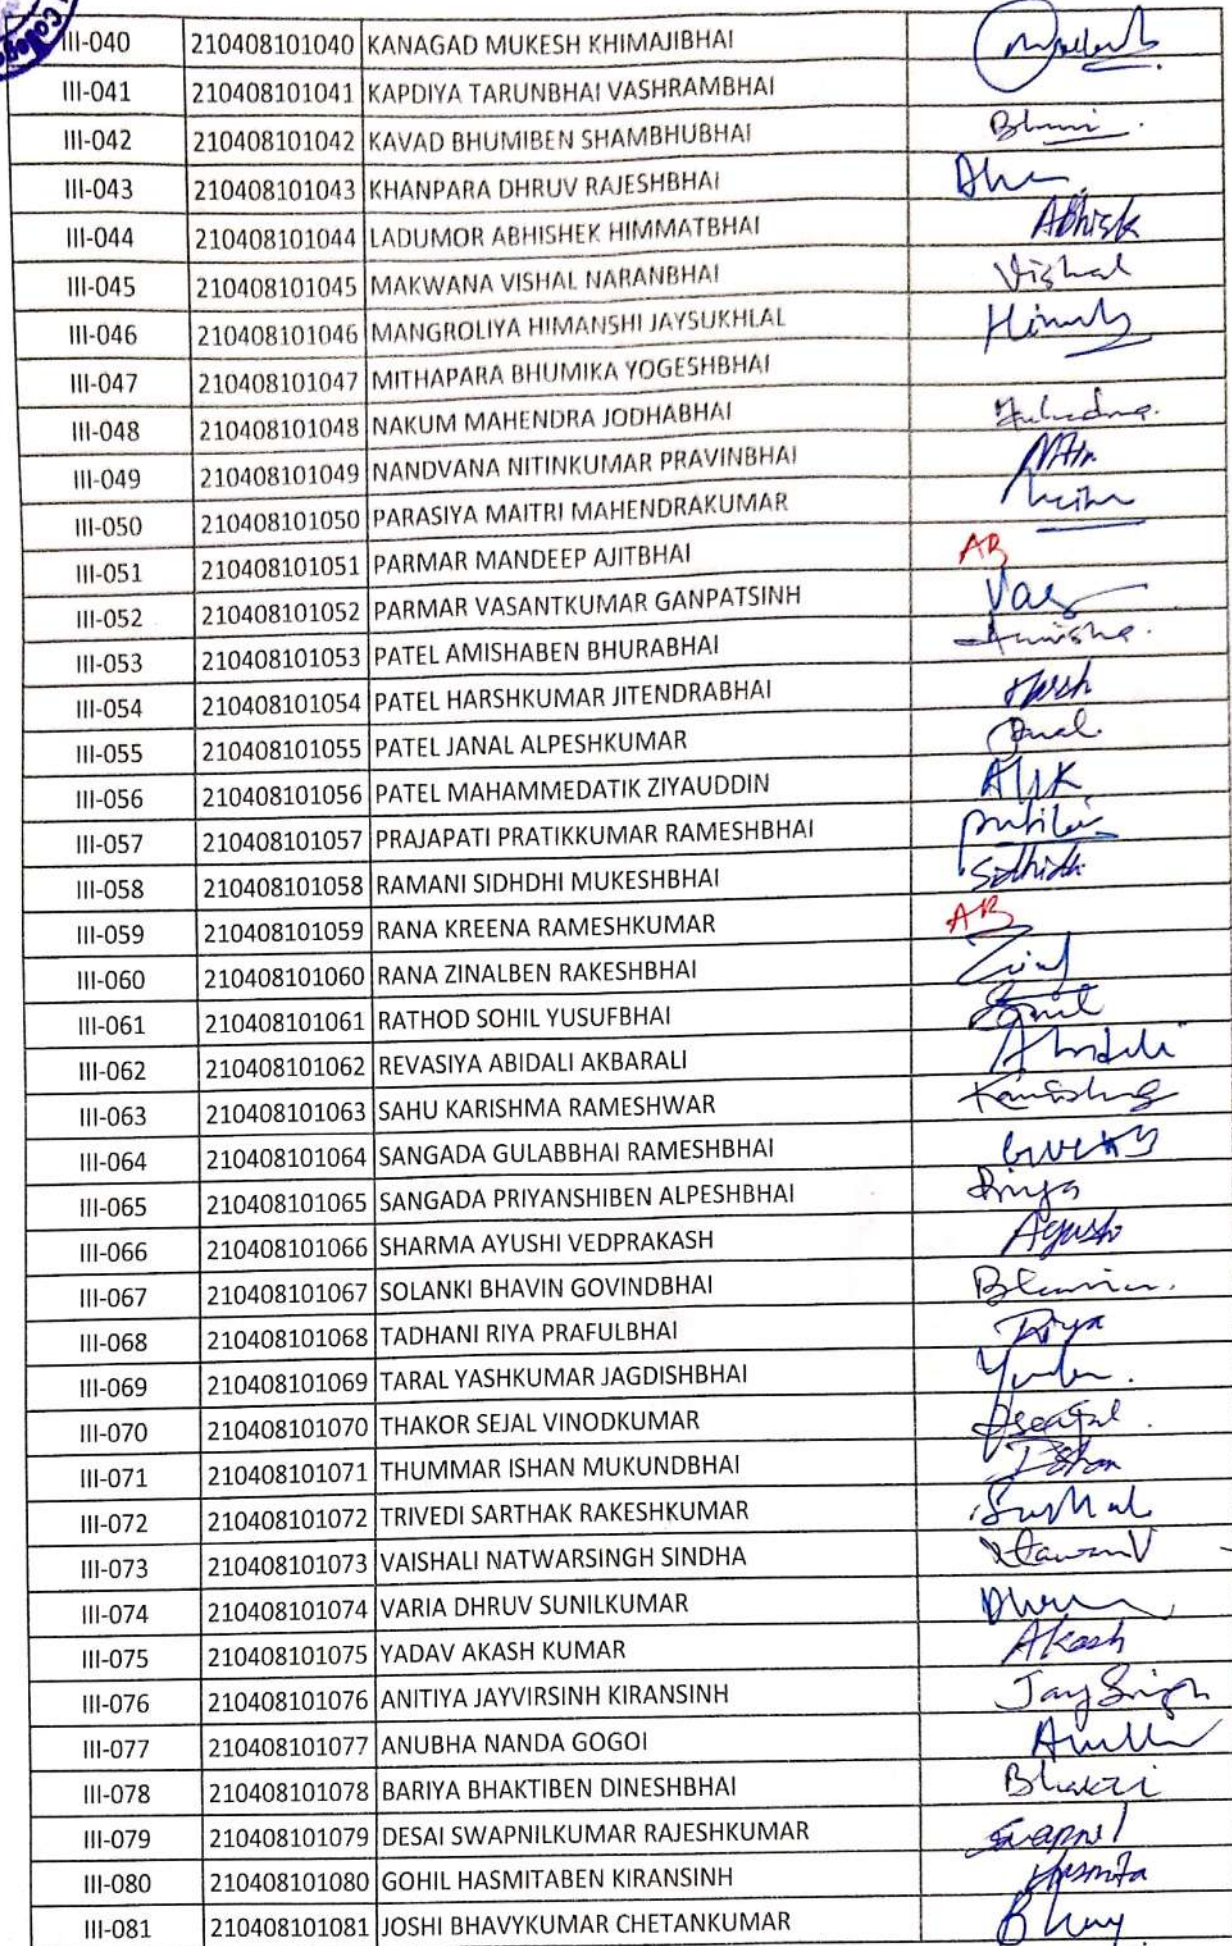 College
III-040 210408101040 KANAGAD MUKESH KHIMAJIBHAI
III-041 210408101041 KAPDIYA TARUNBHAI VASHRAMBHAI
III-042 210408101042 KAVAD BHUMIBEN SHAMBHUBHAI
III-043 210408101043 KHANPARA DHRUV RAJESHBHAI
III-044 210408101044 LADUMOR ABHISHEK HIMMATBHAI Abhisk
III-045 210408101045 MAKWANA VISHAL NARANBHAI Vishal
III-046 210408101046 MANGROLIYA HIMANSHI JAYSUKHLAL
III-047 210408101047 MITHAPARA BHUMIKA YOGESHBHAI
III-048 210408101048 NAKUM MAHENDRA JODHABHAI
III-049 210408101049 NANDVANA NITINKUMAR PRAVINBHAI
III-050 210408101050 PARASIYA MAITRI MAHENDRAKUMAR
III-051 210408101051 PARMAR MANDEEP AJITBHAI AB
III-052 210408101052 PARMAR VASANTKUMAR GANPATSINH
III-053 210408101053 PATEL AMISHABEN BHURABHAI
III-054 210408101054 PATEL HARSHKUMAR JITENDRABHAI Harsh
III-055 210408101055 PATEL JANAL ALPESHKUMAR
III-056 210408101056 PATEL MAHAMMEDATIK ZIYAUDDIN
III-057 210408101057 PRAJAPATI PRATIKKUMAR RAMESHBHAI
III-058 210408101058 RAMANI SIDHDHI MUKESHBHAI
III-059 210408101059 RANA KREENA RAMESHKUMAR AB
III-060 210408101060 RANA ZINALBEN RAKESHBHAI
III-061 210408101061 RATHOD SOHIL YUSUFBHAI
III-062 210408101062 REVASIYA ABIDALI AKBARALI
III-063 210408101063 SAHU KARISHMA RAMESHWAR
III-064 210408101064 SANGADA GULABBHAI RAMESHBHAI
III-065 210408101065 SANGADA PRIYANSHIBEN ALPESHBHAI
III-066 210408101066 SHARMA AYUSHI VEDPRAKASH
III-067 210408101067 SOLANKI BHAVIN GOVINDBHAI
III-068 210408101068 TADHANI RIYA PRAFULBHAI Riya
III-069 210408101069 TARAL YASHKUMAR JAGDISHBHAI
III-070 210408101070 THAKOR SEJAL VINODKUMAR
III-071 210408101071 THUMMAR ISHAN MUKUNDBHAI
III-072 210408101072 TRIVEDI SARTHAK RAKESHKUMAR
III-073 210408101073 VAISHALI NATWARSINGH SINDHA
III-074 210408101074 VARIA DHRUV SUNILKUMAR
III-075 210408101075 YADAV AKASH KUMAR Akash
III-076 210408101076 ANITIYA JAYVIRSINH KIRANSINH
III-077 210408101077 ANUBHA NANDA GOGOI
III-078 210408101078 BARIYA BHAKTIBEN DINESHBHAI Bhakti
III-079 210408101079 DESAI SWAPNILKUMAR RAJESHKUMAR
III-080 210408101080 GOHIL HASMITABEN KIRANSINH Hasmita
III-081 210408101081 JOSHI BHAVYKUMAR CHETANKUMAR